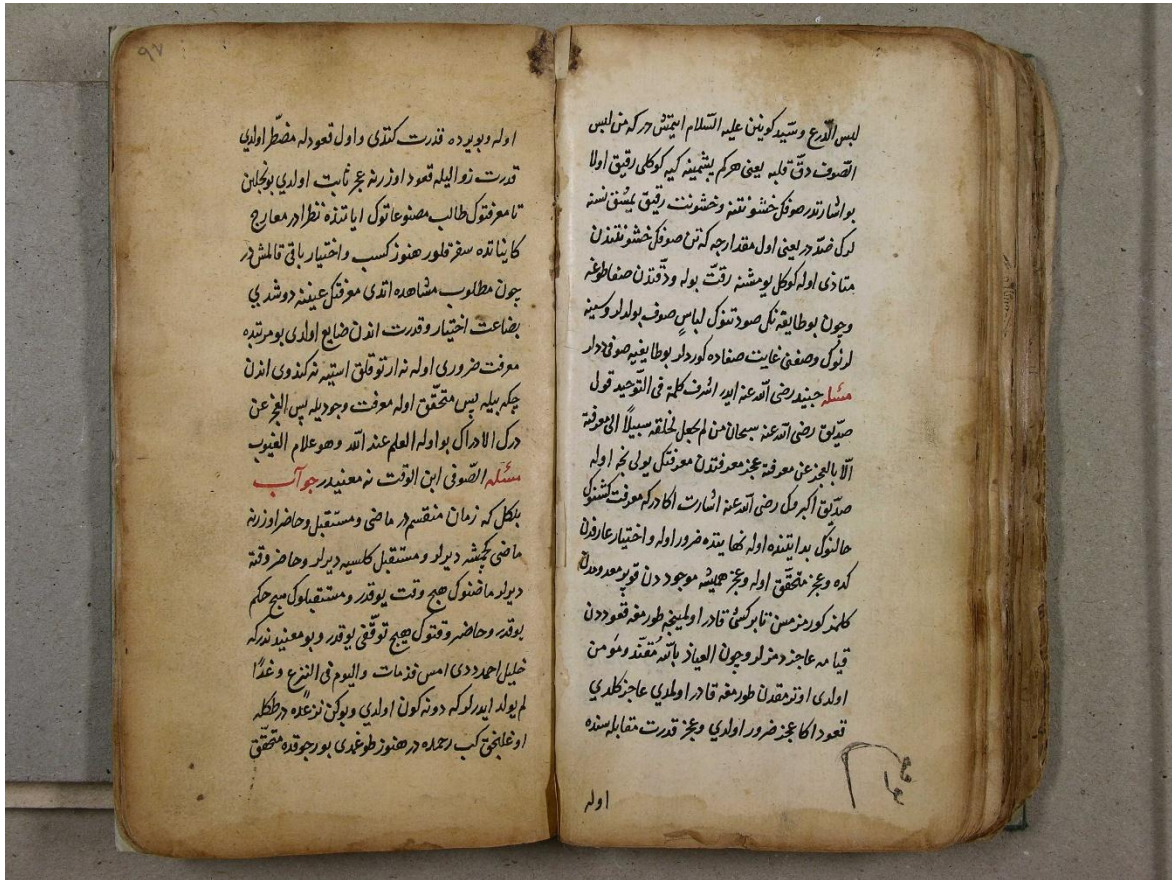 لبس الدرع وسيد كونين عليه السلام ايتمش در كه من لبس
الصوف دق قلبه يعنى هركم پشمينه كيه كوكلى رقيق اولا
بو اشارتدر صوفك خشونتنه وخشونت رقيق يمشق نسنه
لرك ضد در يعنى اول مقدارجه كه تن صوفك خشونتندن
متاذى اوله كوكل يومشنه رقت بوله ودقتدن صفا طوغه
وچون بو طايفه نك صورتنوك لباس صوف بولدلر وسينه
لرنوك وصفنى غايت صفاده كوردلر بو طايفيه صوفى ددلر
مسئله جنيد رضى الله عنه ايدر اشرف كلمة فى التوحيد قول
صديق رضى الله عنه سبحان من لم يجعل لخلقه سبيلاً الى معرفته
الا بالعجز عن معرفته عجز معرفتدن معرفتك يولى نجه اوله
صديق اكبروك رضى الله عنه اشارت اكا در كه معرفت كشنوك
حالنوك بدايتنده اوله نهايتده ضرور اوله واختيار عارفدن
كده وعجز متحقق اوله وعجز هميشه موجود دن قوپر معدومدن
كلمز كورمزمسن تا بر كشى قادر اولمينجه طورمغه قعوددن
قيامه عاجز دمزلر وچون العياذ بالله مقعد ومؤمن
اولدى اوتورمقدن طورمغه قادر اولمدي عاجز كلدي
قعود اكا عجز ضرور اولدي وعجز قدرت مقابله سنده
اوله
٩٧
اوله وبويوده قدرت كتدى واول قعودله مضطر اولدي
قدرت زواليله قعود اوزرنه عجز ثابت اولدي بونجلين
تا معرفتوك طالب مصنوعاتوك اياتنده نظر ادر معارج
كايناتده سفر قلور هنوز كسب واختيار باقى قالمش در
چون مطلوب مشاهده اتدى معرفتك عيننه دوشدي
بضاعت اختيار وقدرت اندن ضايع اولدى بو مرتبده
معرفت ضرورى اوله نه ارتوقلق استيه نه كندوى اندن
چكه بيله پس متحقق اوله معرفت وجوديله پس العجز عن
درك الادراك بو اوله العلم عند الله وهو علام الغيوب
مسئله الصوفى ابن الوقت نه معنيدر جواب
بلكل كه زمان منقسم در ماضى ومستقبل وحاضر اوزرنه
ماضى كچمشه ديرلر ومستقبل كلسيه ديرلر وحاضر وقته
ديرلر ماضنوك هيچ وقت يوقدر ومستقبلوك هيچ حكم
يوقدر وحاضر وقتوك هيچ توقفى يوقدر وبو معنيدندر كه
خليل احمد ددى امس قد مات واليوم فى النزع وغداً
لم يولد ايدرلر كه دونه كون اولدي وبوكن نزعده در طكله
اوغلنجق كب رحمده در هنوز طوغمدى بو رجوقده متحقق